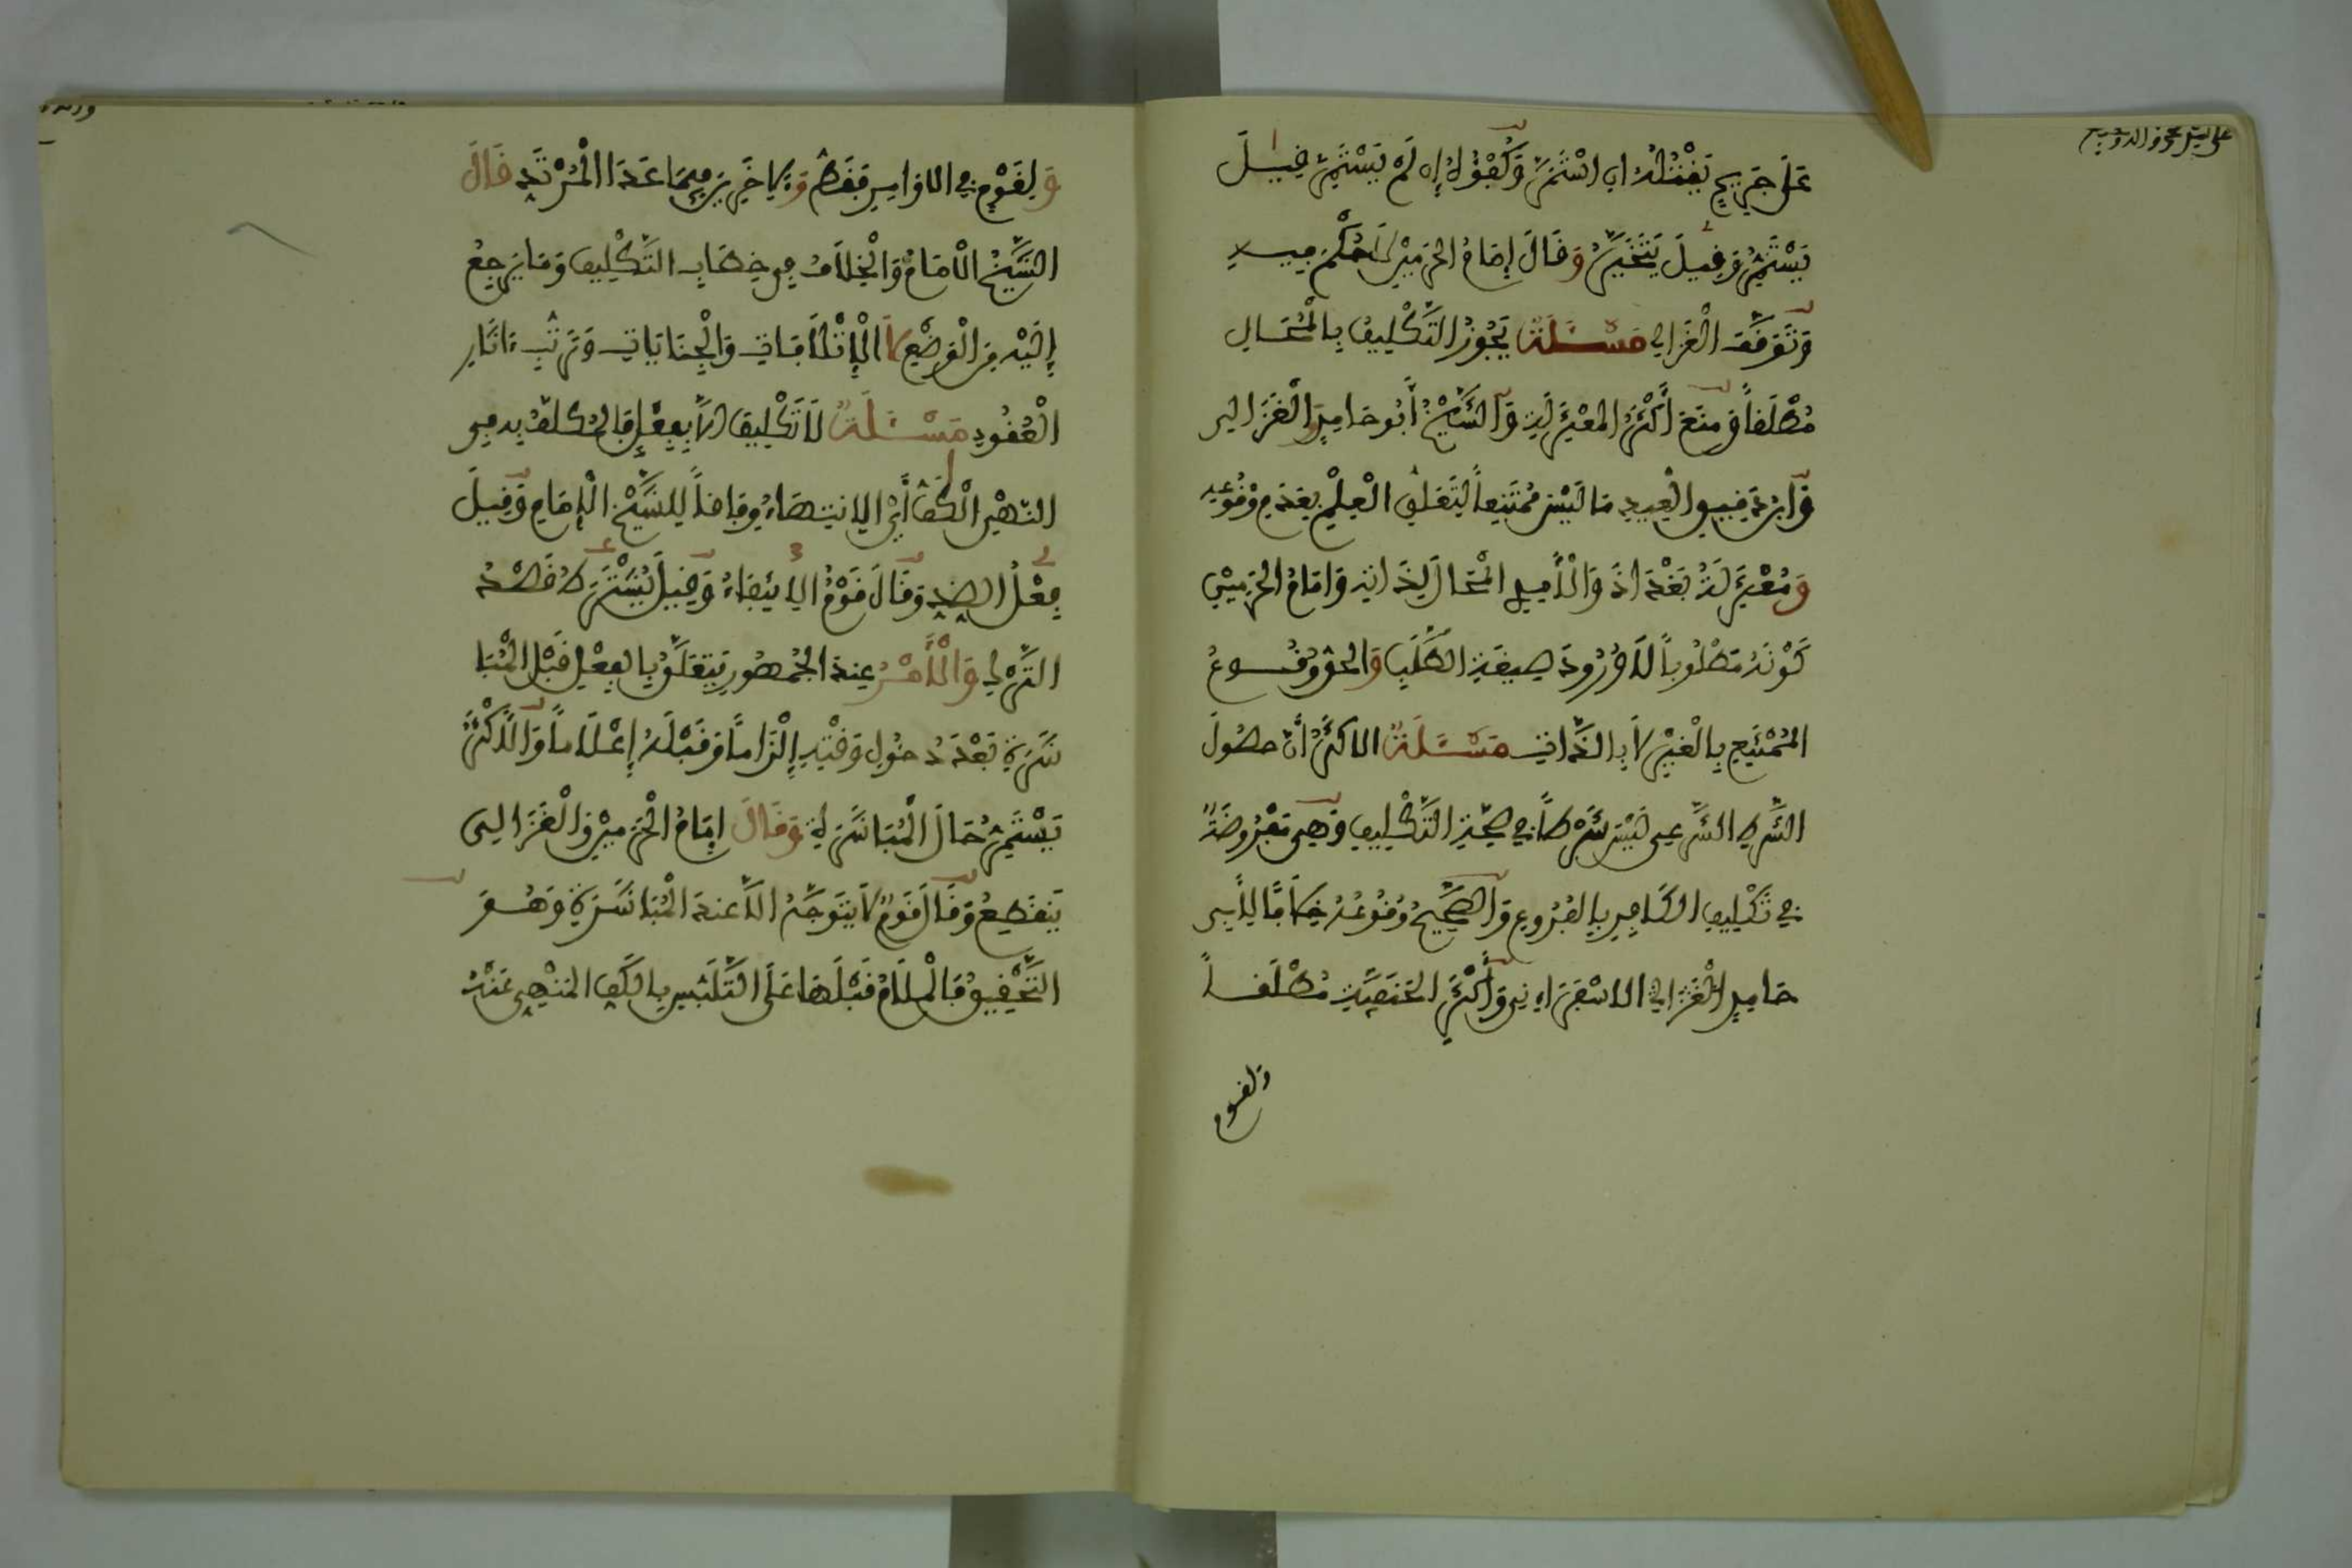 عَلَى جَرِيحٍ يَقْتُلُهُ إِنِ اسْتَمَرَّ وَكُفْؤَهُ إِن لَمْ يَسْتَمِرَّ قِيلَ
يَسْتَمِرُّ وَقِيلَ يَتَخَيَّرُ وَقَالَ إِمَامُ الحَرَمَيْنِ لَا حُكْمَ فِيهِ
وَتَوَقَّفَ الْغَزَالِي مَسْـَٔلَةٌ يَجُوزُ التَّكْلِيفُ بِالْمُحَالِ
مُطْلَقاً وَمَنَعَ أَكْثَرُ المُعْتَزِلَةِ وَالشَّيْخُ أَبُو حَامِدٍ وَالْغَزَالِي
وَابْنُ دَقِيقِ الْعِيدِ مَا لَيْسَ مُمْتَنِعاً لِتَعَلُّقِ الْعِلْمِ بِعَدَمِ وُقُوعِهِ
وَمُعْتَزِلَةُ بَغْدَاذَ وَالْأَمِدِي الْمُحَالَ لِذَاتِهِ وَإمَامُ الحَرَمَيْنِ
كَوْنَهُ مَطْلُوباً لَا وُرُودَ صِيغَةِ الطَّلَبِ وَالحَقُّ وُقُوعُ
المُمْتَنِعِ بِالْغَيْرِ لَا بِالذَّاتِ مَسْـَٔلَةٌ الاكْثَرُ أَنَّ حصُولَ
الشَّرْطِ الشَّرْعِي لَيْسَ شَرْطاً فِي صِحَّةِ التَّكْلِيفِ وَهِيَ مَفْرُوضَةٌ
فِي تَكْلِيفِ الكَافِرِ بِالفُرُوعِ وَالصَّحِيحُ وُقُوعُهُ خِلَافًا لِأَبِي
حَامِدٍ الْغَزَالِي الاسْفِرَاءِنِي وَأَكْثَرِ الحَنَفِيَّةِ مُطْلَقاً
ولقوم
وَلِقَوْمٍ فِي الاوَامِرِ فَقَطْ وَلِـَٔاخَرِينَ فِيمَا عَدَا الْمُرْتَدِّ قَالَ
الشَّيْخُ الْامَامُ وَالْخِلَافُ فِي خِطَابِ التَّكْلِيفِ وَمَا يَرْجِعُ
إِلَيْهِ مِنَ الْوَضْعِ لَا الْإِتْلَافَاتِ وَالْجِنَايَاتِ وَتَرَتُّبِ ءَاثَارِ
الْعُقُودِ مَسْـَٔلَةٌ لَا تَكْلِيفَ الَّا بِفِعْلٍ فَالمُكَلَّفُ بِهِ فِي
النَّهْيِ الْكَفُّ أَيِ الِانتِهَاءُ وِفَاقاً لِلشَّيْخِ الْإِمَامِ وَقِيلَ
فِعْلُ الضِّدِّ وَقَالَ قَوْمٌ الِانتِفَاءُ وَقِيلَ يُشْتَرَطُ قَصْدُ
التَّرْكِ وَالْأَمْرُ عِندَ الجُمْهُورِ يَتَعَلَّقُ بِالفِعْلِ قَبْلَ الْمُبَا
شَرَةِ بَعْدَ دُخُولِ وَقْتِهِ إِلْزَاماً وَقَبْلَهُ إِعْلَاماً وَالْأَكْثَرُ
يَسْتَمِرُّ حَالَ الْمُبَاشَرَةِ وَقَالَ إِمَامُ الْحَرَمَيْنِ وَالْغَزَالِي
يَنقَطِعُ وَقَالَ قَوْمٌ لَا يَتَوَجَّهُ الَّا عِندَ الْمُبَاشَرَةِ وَهُوَ
التَّحْقِيقُ فَالْمَلَامُ قَبْلَهَا عَلَى التَّلَبُّسِ بِالكَفِّ المَنْهِيِّ عَنْهُ